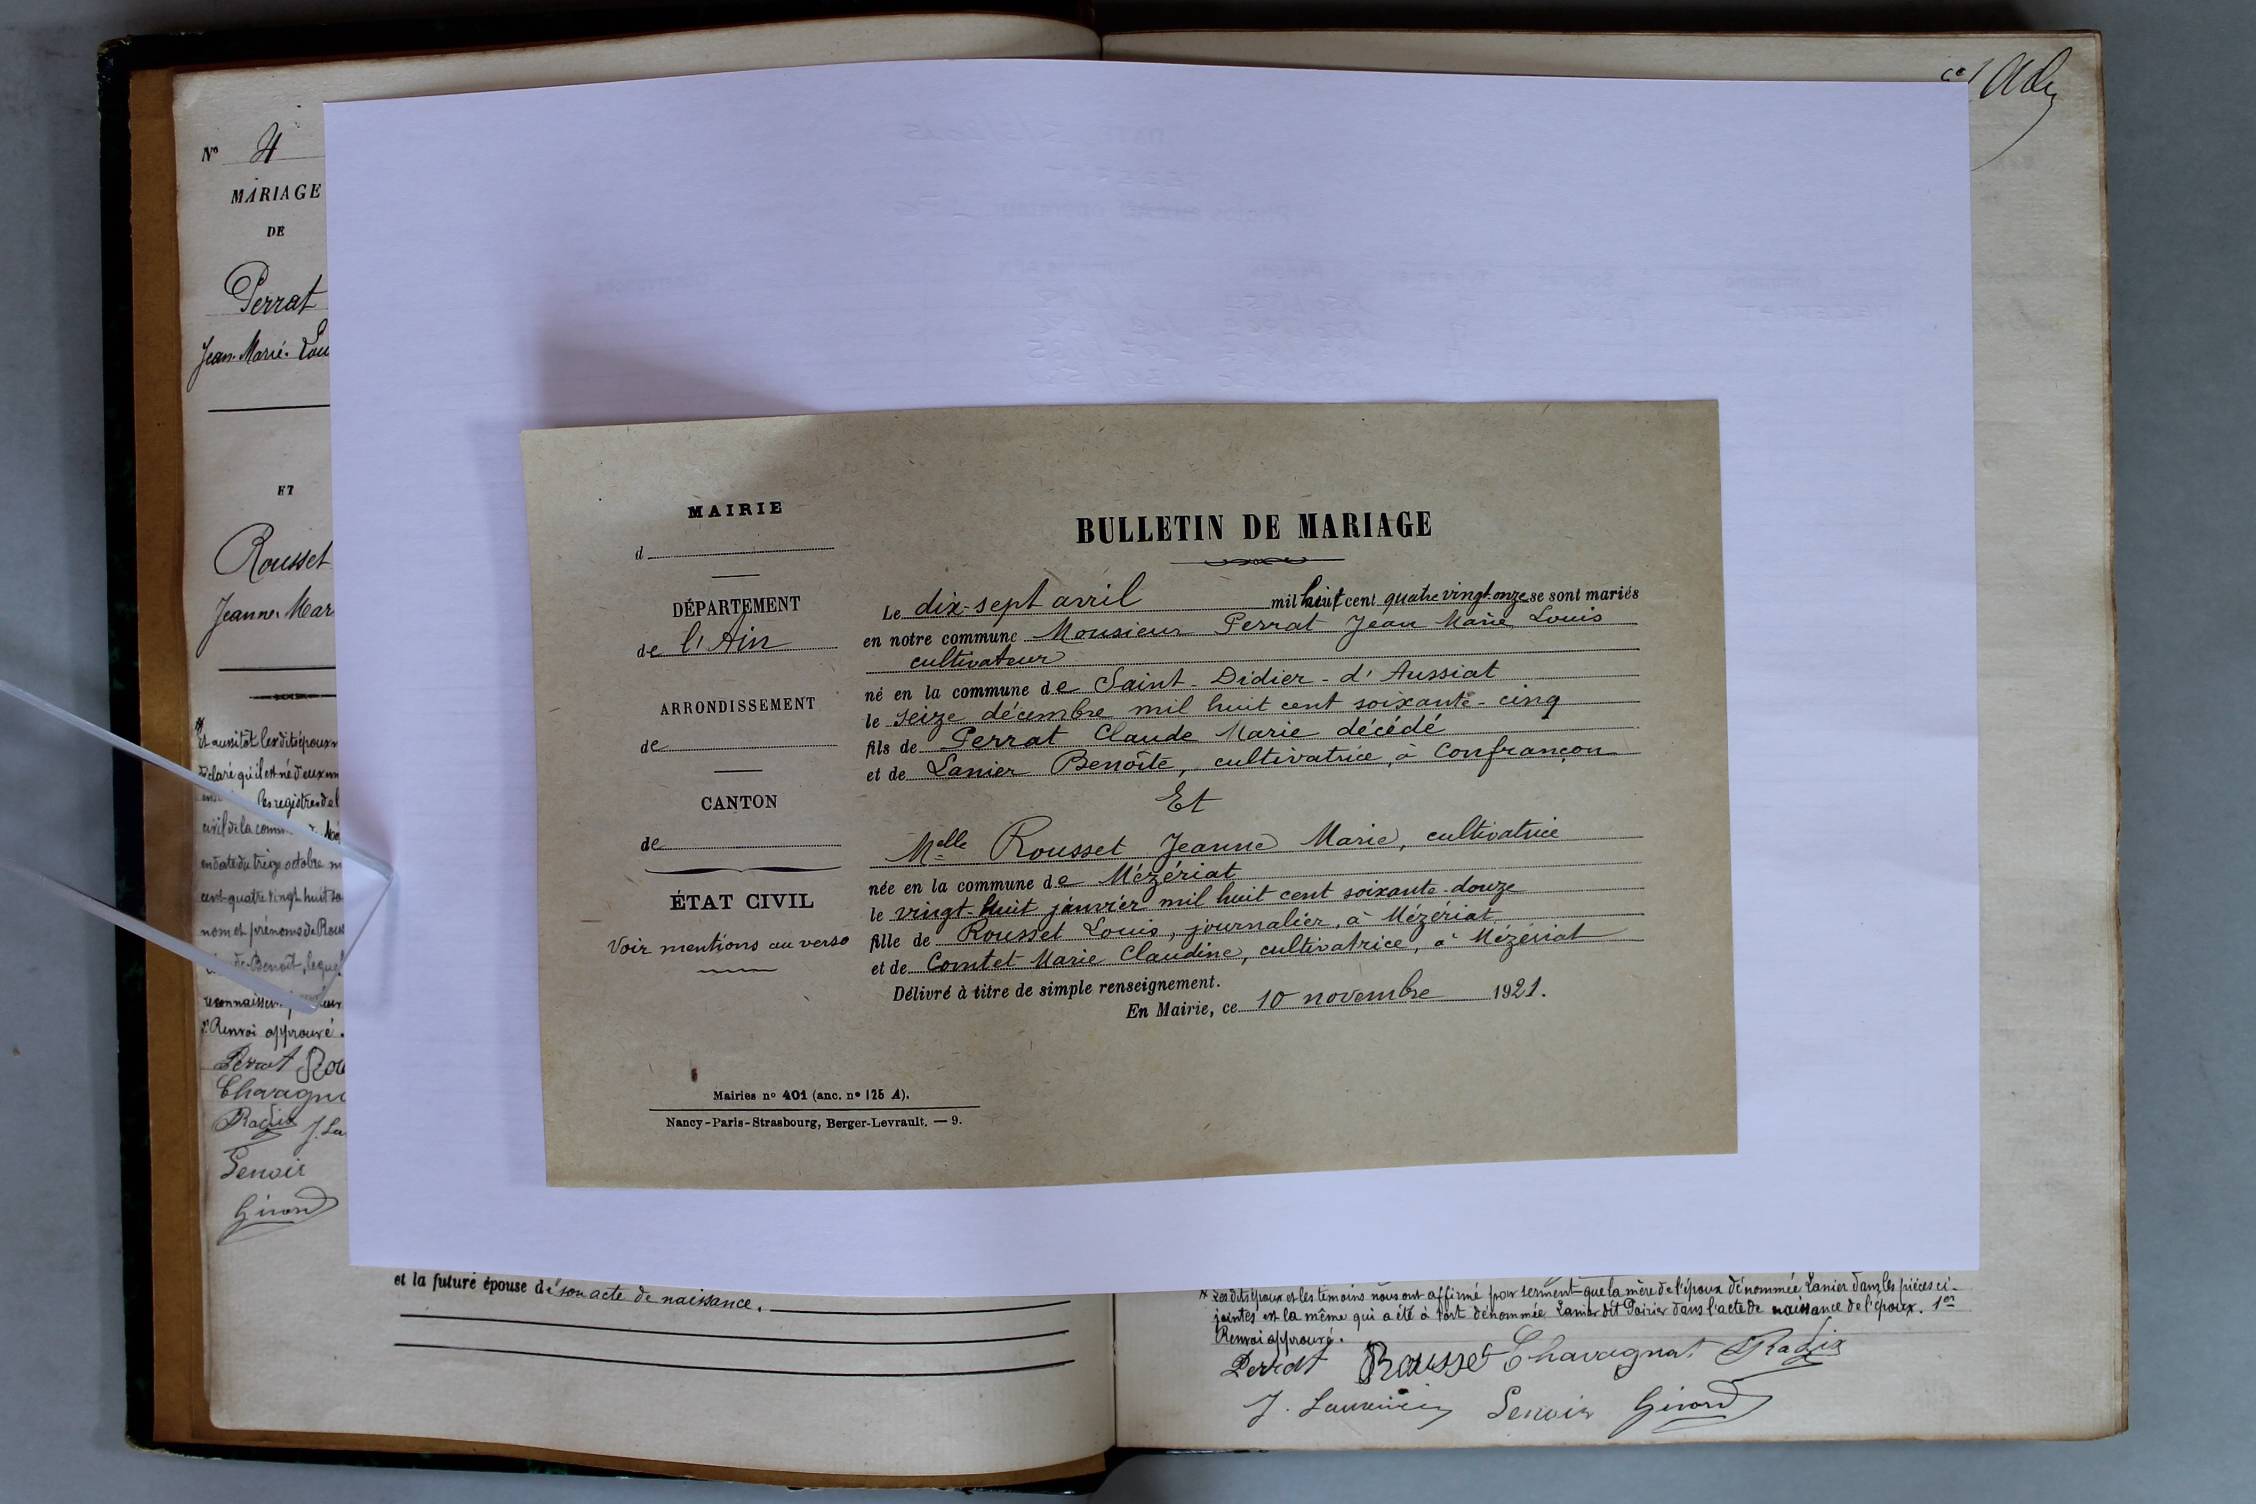 Nº 4
MARIAGE
DE
Perrat
Jean-Marie-Lou
ET
Rousset
Jeanne-Mar
Et aussitôt lesdits époux
déclaré qu'il est né d'eux
les registres de l
civil de la comm
en date du treize octobre m
cent-quatre vingt huit
nom et prénoms de Rous
de Benoît, lequel
reconnaissent
2e Renvoi approuvé.
Perrat Rou
Chavagn
Radix J. La
Lenoir
Girard
MAIRIE
d
DÉPARTEMENT
de l'Ain
ARRONDISSEMENT
de
CANTON
de
ÉTAT CIVIL
Voir mentions au verso
Mairies nº 401 (anc. nº 125 A).
Nancy-Paris-Strasbourg, Berger-Levrault. — 9.
BULLETIN DE MARIAGE
Le dix-sept avril mil huit cent quatre vingt-onze se sont mariés
en notre commune Monsieur Perrat Jean Marie Louis
cultivateur
né en la commune de Saint-Didier-d'Aussiat
le seize décembre mil huit cent soixante-cinq
fils de Perrat Claude Marie décédé
et de Lanier Benoîte, cultivatrice, à Confrançon
Et
Melle Rousset Jeanne Marie, cultivatrice
née en la commune de Mézériat
le vingt-huit janvier mil huit cent soixante-douze
fille de Rousset Louis, journalier, à Mézériat
et de Comtet Marie Claudine, cultivatrice, à Mézériat
Délivré à titre de simple renseignement.
En Mairie, ce 10 novembre 1921.
et la future épouse de son acte de naissance.
Lesdits époux et les témoins nous ont affirmé par serment que la mère de l'époux dénommée Lanier dans les pièces ci-
jointes est la même qui a été à tort dénommée Lanier dit Poirier dans l'acte de naissance de l'époux. 1er
Renvoi approuvé.
Perrat Rousset Chavagnat Radix
J. Laurencin Lenoir Girard